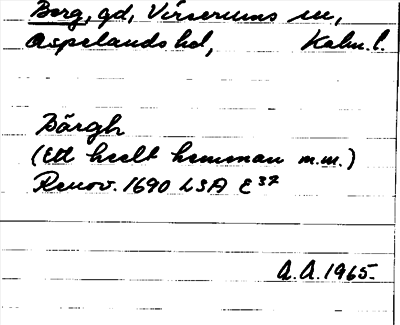 Berg, gd, Virserums sn,
Aspelands hd, Kalm. l.
Bärgh
(Ett heelt hemman m.m.)
Renov. 1690 LSA E³⁷
A.A. 1965.